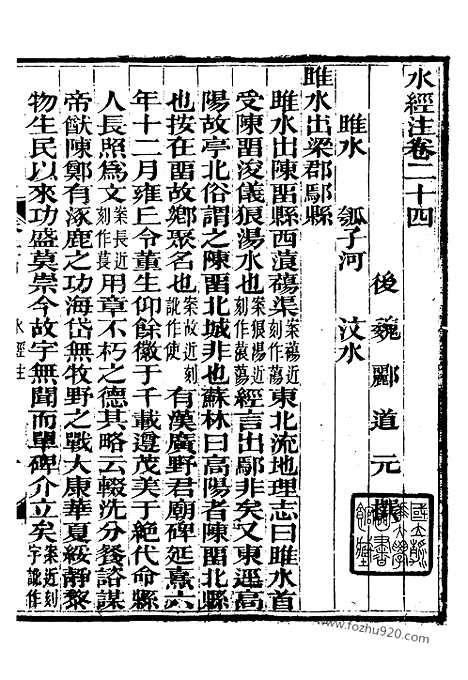 水經注卷二十四
後魏酈道元撰
睢水　瓠子河　汶水
睢水出梁郡鄢縣
睢水出陳留縣西蒗蕩渠案蕩近刻作䕞東北流地理志曰睢水首
受陳留浚儀狼湯水也案狼湯近刻作蒗蕩經言出鄢非矣又東逕高
陽故亭北俗謂之陳留北城非也蘇林曰高陽者陳留北縣
也按在留故鄉聚名也案故近刻訛作使有漢廣野君廟碑延熹六
年十二月雍丘令董生仰餘徽于千載遵茂美于絶代命縣
人長照爲文案長近刻作萇用章不朽之德其略云輟洗分餐諮謀
帝猷陳鄭有涿鹿之功海岱無牧野之戰大康華夏綏靜黎
物生民以來功盛莫崇今故宇無聞而單碑介立矣案近刻字訛作
水經注
www.fozhu920.com